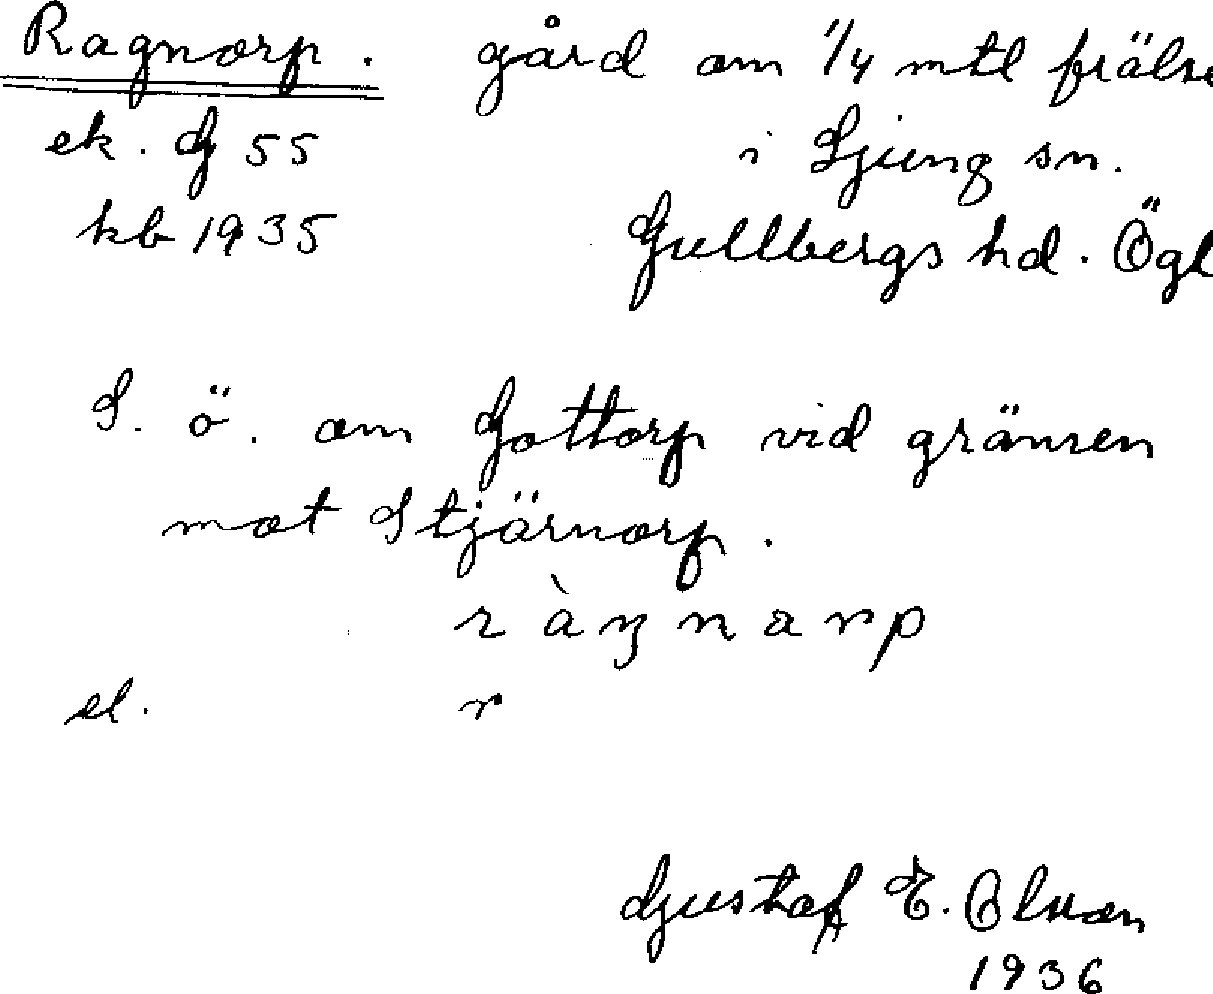 Ragnorp. gård om 1/4 mtl frälse
ek. G 55 i Ljung sn.
kb 1935 Gullbergs hd. Ögl
S. ö. om Gottorp vid gränsen
mot Stjärnorp.
ràŋnarp
el. r
Gustaf E. Olson
1936